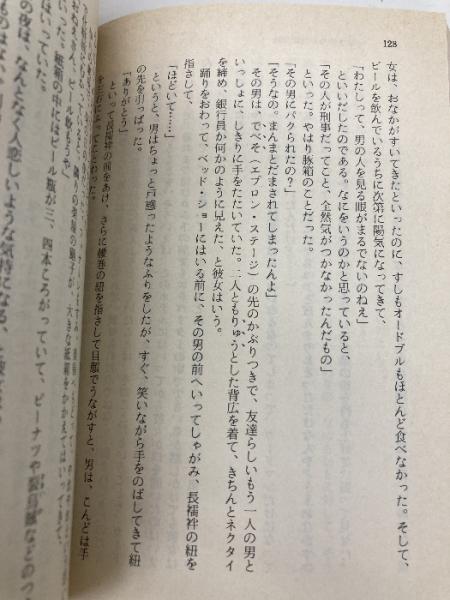 128
女は、おなかがすいてきたといったのに、すしもオードブルもほとんど食べなかった。そして、
ビールを飲んでいるうちに次第に陽気になってきて、
「わたしって、男の人を見る眼がまるでないのねえ」
といいだしたのである。なにをいうのかと思っていると、
「その人が刑事だってこと、全然気がつかなかったんだもの」
といった。やはり豚箱のことだった。
「その男にパクられたの？」
「そうなの。まんまとだまされてしまったんよ」
その男は、でべそ（エプロン・ステージ）の先のかぶりつきで、友達らしいもう一人の男と
いっしょに、しきりに手をたたいていた。二人ともりゅうとした背広を着て、きちんとネクタイ
を締め、銀行員か何かのように見えた、と彼女はいう。
踊りをおわって、ベッド・ショーにはいる前に、その男の前へいってしゃがみ、長襦袢の紐を
指さして、
「ほどいて……」
というと、男はちょっと戸惑ったようなふりをしたが、すぐ、笑いながら手をのばしてきて紐
の先を引っぱった。
「ありがとう」
といって長襦袢の前をあけ、さらに腰巻の紐を指さして目顔でうながすと、男は、こんどは手
大きな紙箱をかかえてはいっ
った。紙箱の中にはビール瓶が三、四本ころがっていて、ピーナツや
はいっていた。
の夜は、なんとなく人恋しいような気持になる、